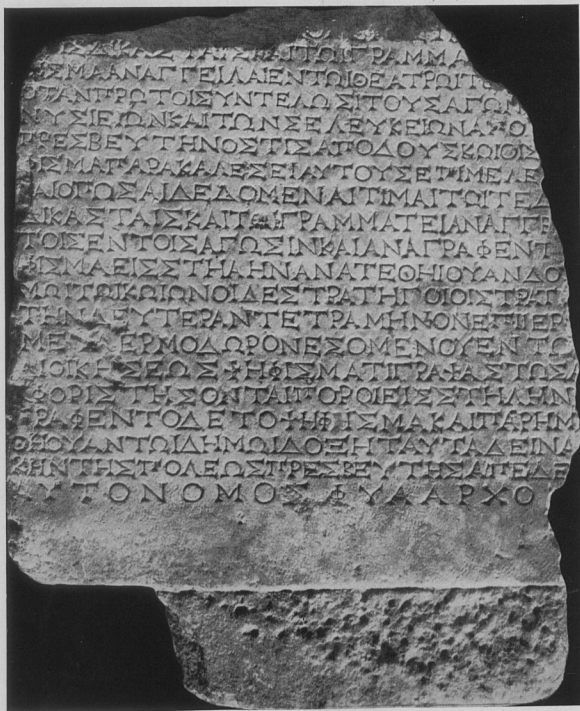 ΔΙΚΑΣΤΑΙΣΚΑΙΤΩΙΓΡΑΜΜΑ
ΙΣΜΑΑΝΑΓΓΕΙΛΑΙΕΝΤΩΙΘΕΑΤΡΩΙΤΟ
ΟΤΑΝΠΡΩΤΟΙΣΥΝΤΕΛΩΣΙΤΟΥΣΑΓΩΝ
ΝΥΣΙΕΙΩΝΚΑΙΤΩΝΣΕΛΕΥΚΕΙΩΝΑΠΟ
ΠΡΕΣΒΕΥΤΗΝΟΣΤΙΣΑΠΟΔΟΥΣΚΩΙΟΙΣ
ΙΣΜΑΠΑΡΑΚΑΛΕΣΕΙΑΥΤΟΥΣΕΠΙΜΕΛΕ
ΑΙΟΠΩΣΑΙΔΕΔΟΜΕΝΑΙΤΙΜΑΙΤΩΙΤΕΔ
ΔΙΚΑΣΤΑΙΣΚΑΙΤΩΙΓΡΑΜΜΑΤΕΙΑΝΑΓΓΕ
ΤΟΙΣΕΝΤΟΙΣΑΓΩΣΙΝΚΑΙΑΝΑΓΡΑΦΕΝΤ
ΦΙΣΜΑΕΙΣΣΤΗΛΗΝΑΝΑΤΕΘΗΙΟΥΑΝΔΟ
ΜΩΙΤΩΙΚΩΙΩΝΟΙΔΕΣΤΡΑΤΗΓΟΙΟΙΣΤΡΑΤ
ΤΗΝΔΕΥΤΕΡΑΝΤΕΤΡΑΜΗΝΟΝΕΠΙΙΕΡ
ΜΕ ΕΡΜΟΔΩΡΟΝΕΣΟΜΕΝΟΥΕΝΤΩ
ΔΙΟΙΚΗΣΕΩΣΨΗΦΙΣΜΑΤΙΓΡΑΨΑΣΤΩΣΑ
ΦΟΡΙΣΤΗΣΟΝΤΑΙΠΟΡΟΙΕΙΣΣΤΗΛΗΝ
ΓΡΑΦΕΝΤΟΔΕΤΟΨΗΦΙΣΜΑΚΑΙΠΑΡΗΜ
ΘΗΟΥΑΝΤΩΙΔΗΜΩΙΔΟΞΗΤΑΥΤΑΔΕΙΝΑ
ΚΗΝΤΗΣΠΟΛΕΩΣΠΡΕΣΒΕΥΤΗΣΑΠΕΔΕ
ΥΤΟΝΟΜΟΣΦΥΛΑΡΧΟ